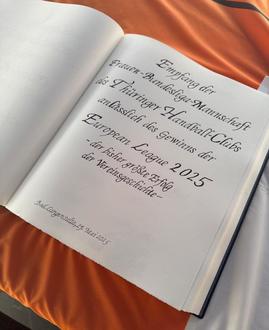 Empfang der
Frauen-Bundesliga-Mannschaft
des Thüringer Handball-Clubs
anlässlich des Gewinns der
European League 2025
- der bisher größte Erfolg
der Vereinsgeschichte -
Bad Langensalza, 13. Mai 2025